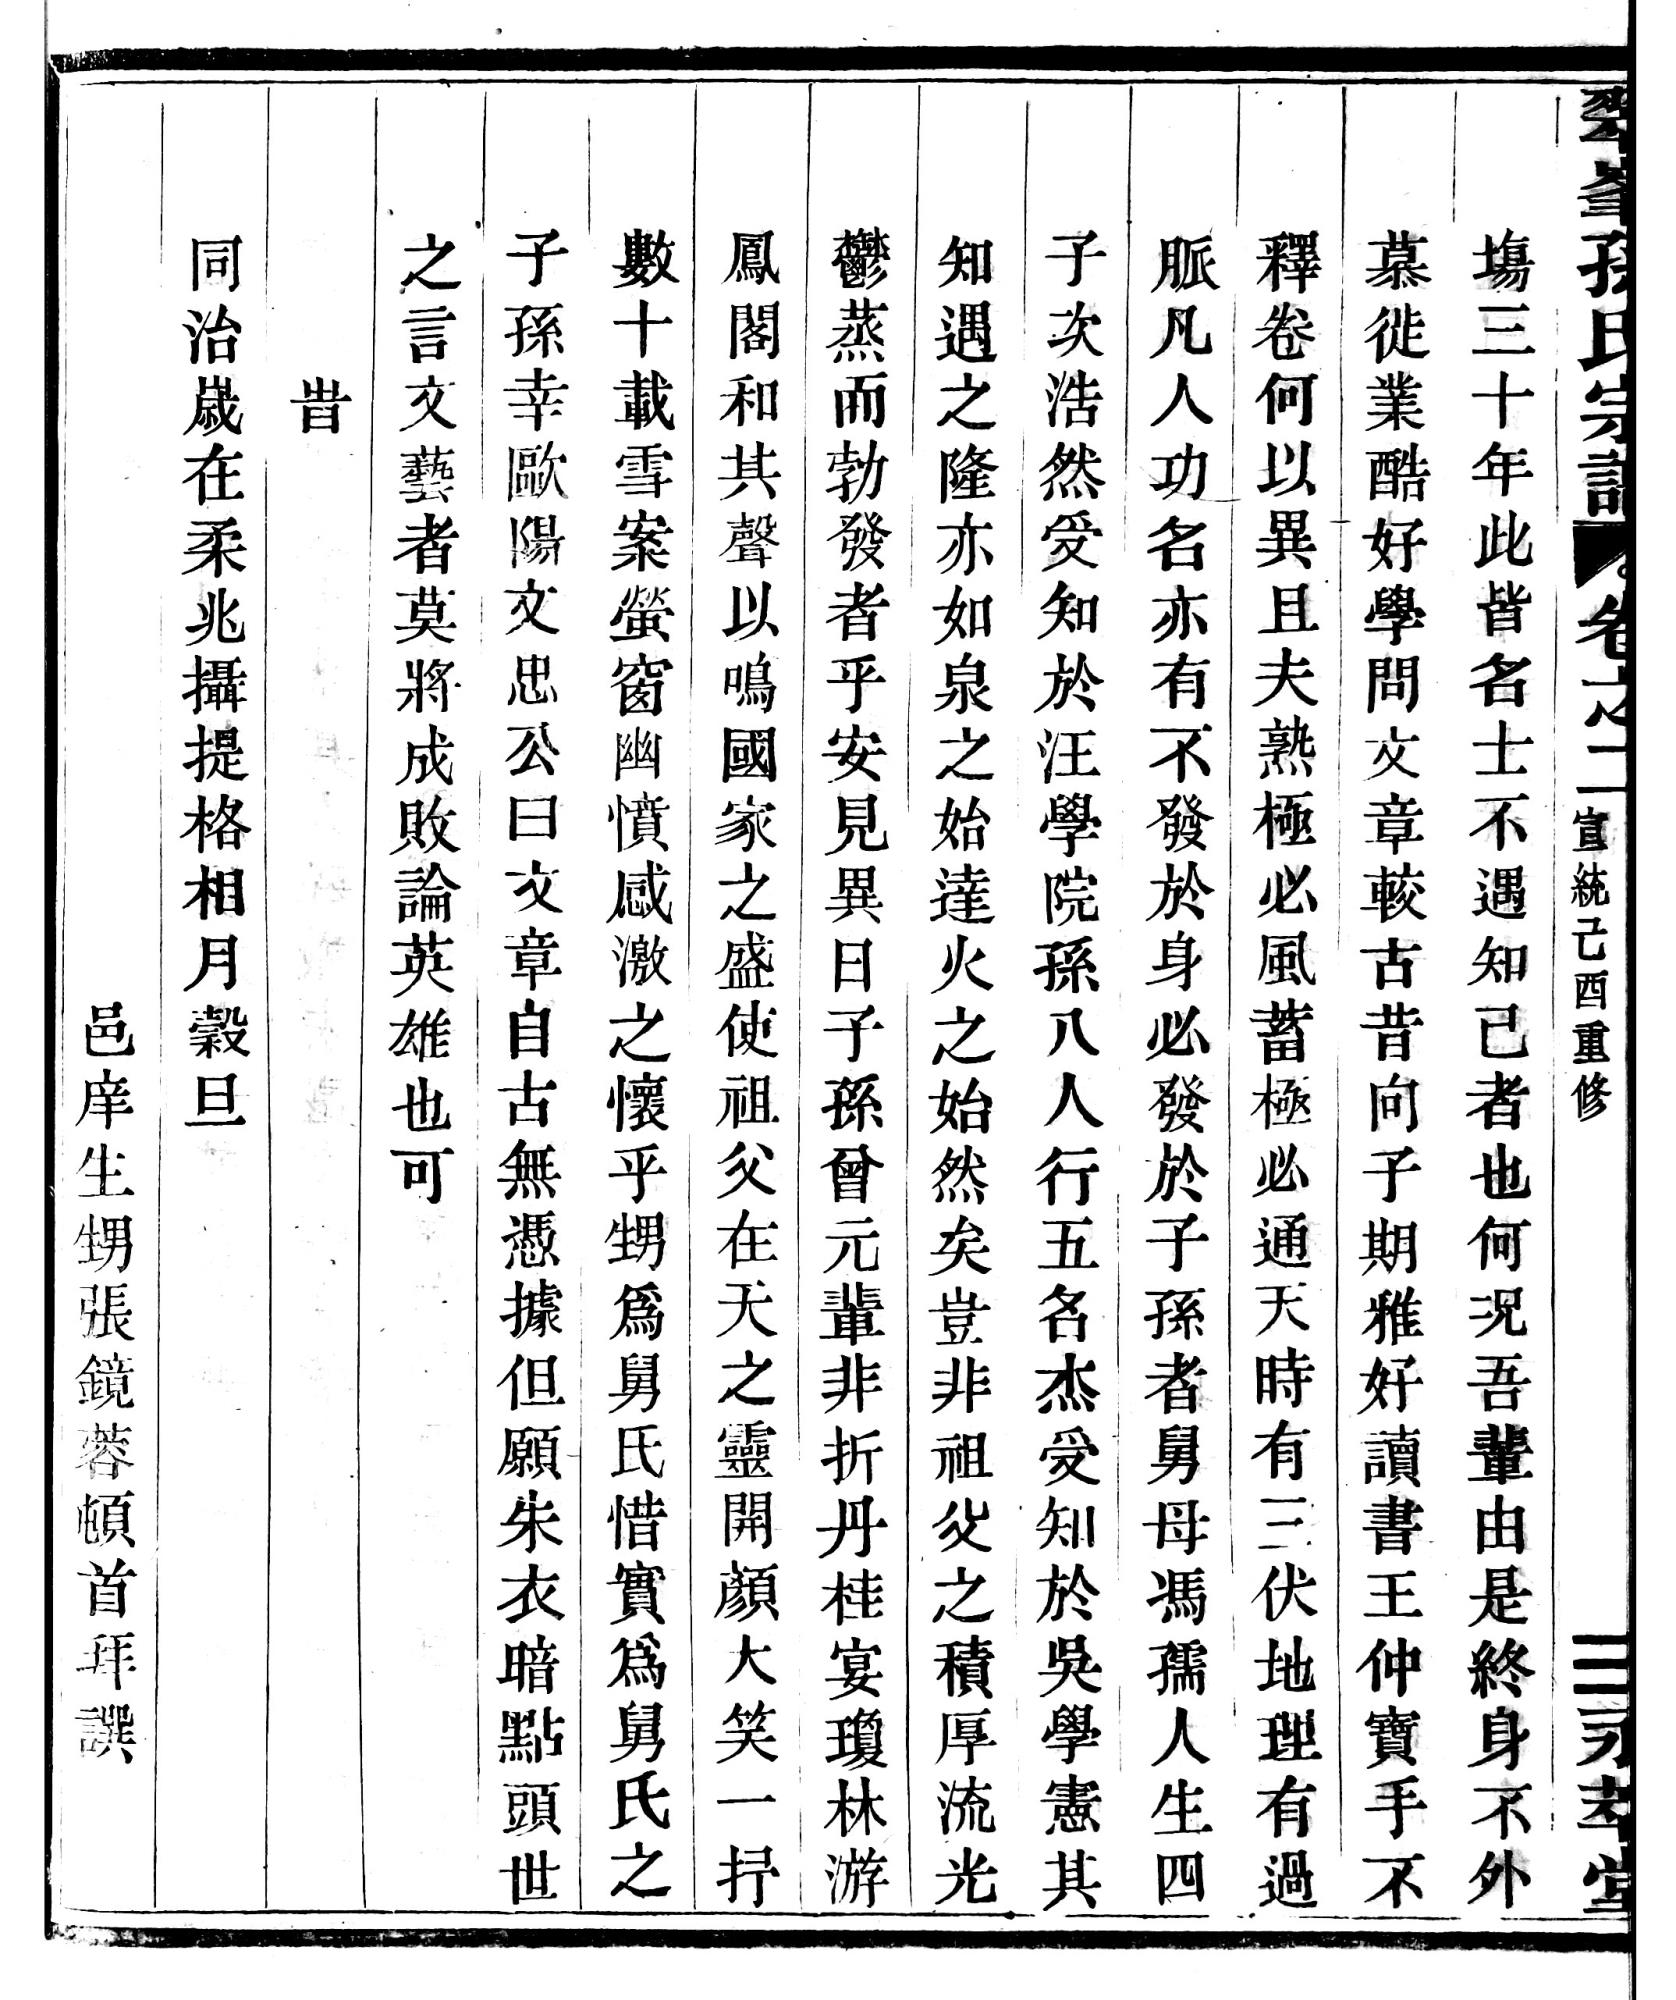 孫氏宗譜 卷之二 宣統己酉重修 三 永孝堂
塲三十年此皆名士不遇知己者也何况吾輩由是終身不外
慕徙業酷好學問文章較古昔向子期雅好讀書王仲寶手不
釋卷何以異且夫熟極必風蓄極必通天時有三伏地理有過
脈凡人功名亦有不發於身必發於子孫者舅母馮孺人生四
子次浩然受知於汪學院孫八人行五名杰受知於吳學憲其
知遇之隆亦如泉之始達火之始然矣豈非祖父之積厚流光
鬱蒸而勃發者乎安見異日子孫曾元輩非折丹桂宴瓊林游
鳳閣和其聲以鳴國家之盛使祖父在天之靈開顔大笑一抒
數十載雪案螢窗幽憤感激之懷乎甥爲舅氏惜實爲舅氏之
子孫幸歐陽文忠公曰文章自古無憑據但願朱衣暗點頭世
之言文藝者莫將成敗論英雄也可
旹
同治歲在柔兆攝提格相月穀旦
邑庠生甥張鏡蓉頓首拜譔